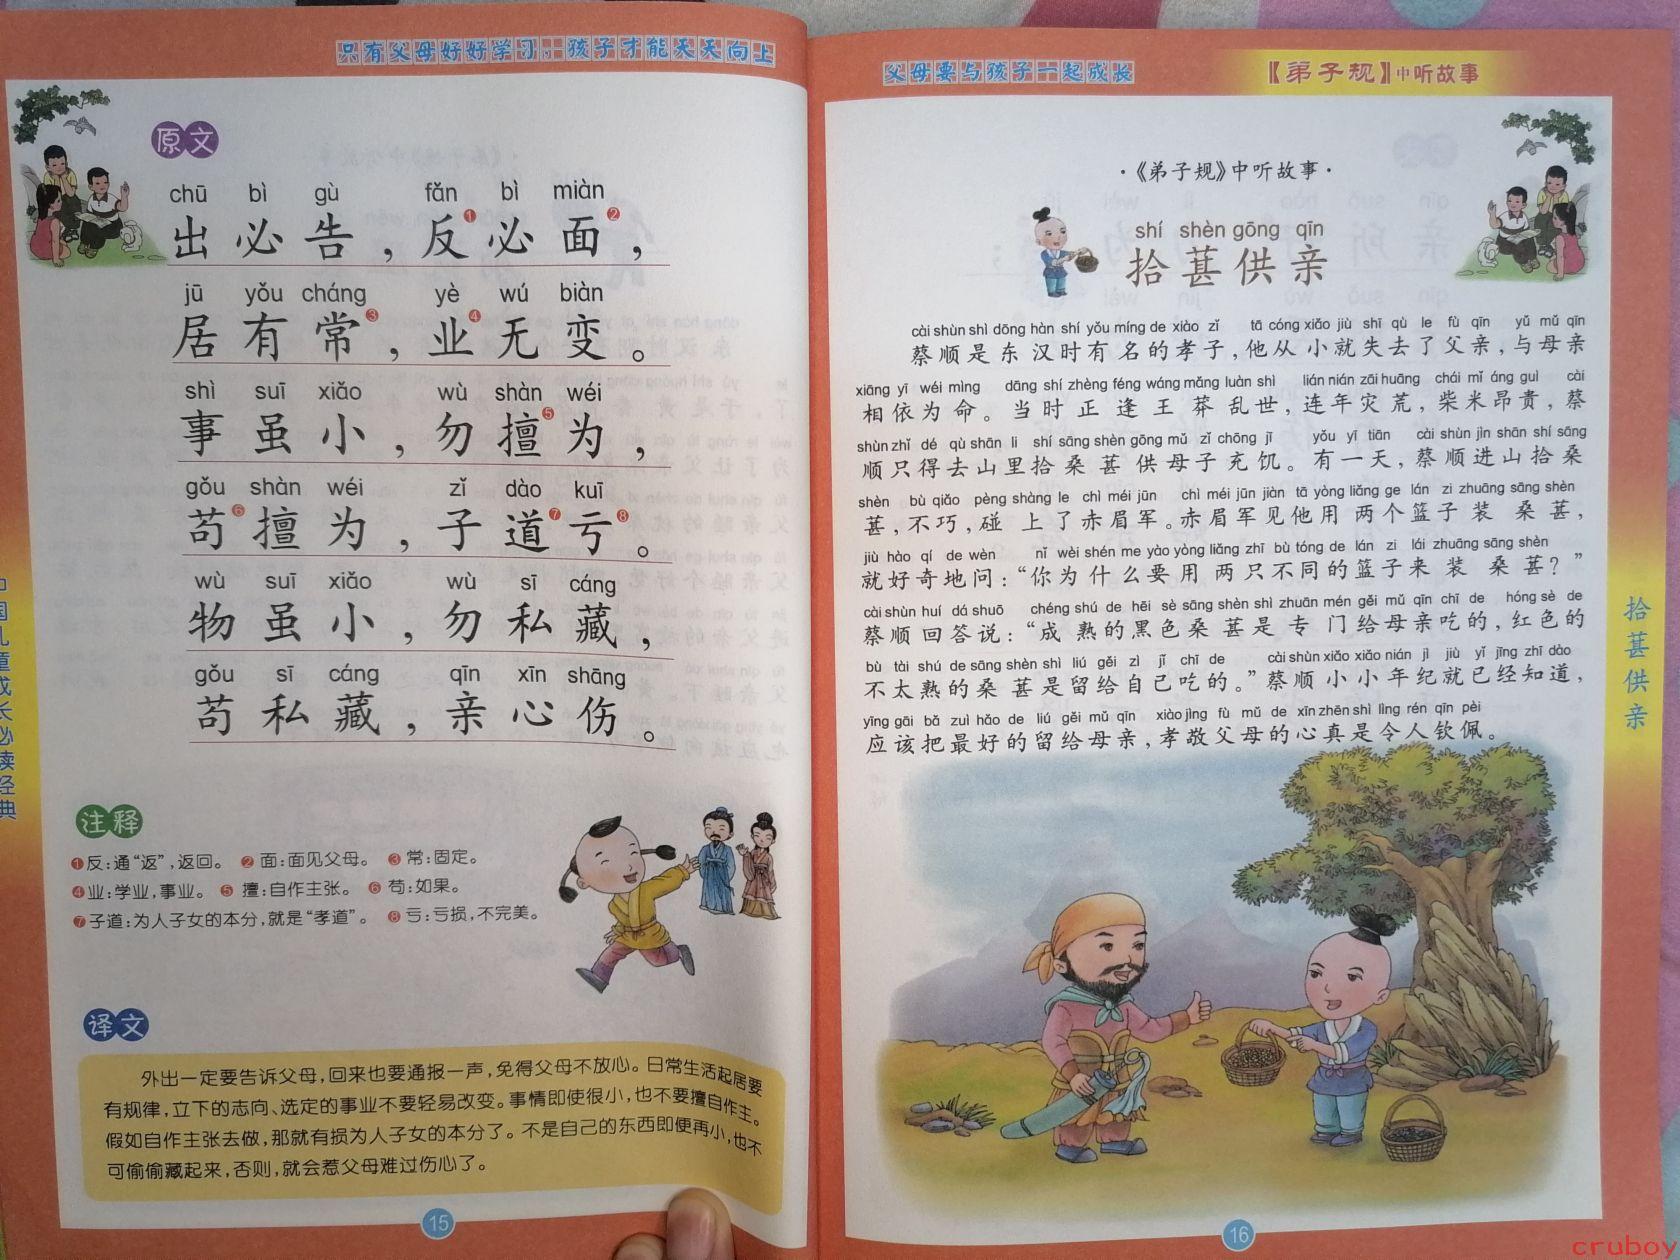 只有父母好好学习,孩子才能天天向上
原文
chū bì gù fǎn bì miàn
出必告,反①必面②,
jū yǒu cháng yè wú biàn
居有常③,业④无变。
shì suī xiǎo wù shàn wéi
事虽小,勿擅⑤为,
gǒu shàn wéi zǐ dào kuī
苟⑥擅为,子道⑦亏⑧。
wù suī xiǎo wù sī cáng
物虽小,勿私藏,
gǒu sī cáng qīn xīn shāng
苟私藏,亲心伤。
注释
①反:通“返”,返回。 ②面:面见父母。 ③常:固定。
④业:学业,事业。 ⑤擅:自作主张。 ⑥苟:如果。
⑦子道:为人子女的本分,就是“孝道”。 ⑧亏:亏损,不完美。
译文
外出一定要告诉父母,回来也要通报一声,免得父母不放心。日常生活起居要
有规律,立下的志向、选定的事业不要轻易改变。事情即使很小,也不要擅自作主。
假如自作主张去做,那就有损为人子女的本分了。不是自己的东西即便再小,也不
可偷偷藏起来,否则,就会惹父母难过伤心了。
15
中国儿童成长必读经典
父母要与孩子一起成长
《弟子规》中听故事
·《弟子规》中听故事·
shí shèn gōng qīn
拾葚供亲
cài shùn shì dōng hàn shí yǒu míng de xiào zǐ tā cóng xiǎo jiù shī qù le fù qīn yǔ mǔ qīn
蔡顺是东汉时有名的孝子,他从小就失去了父亲,与母亲
xiāng yī wéi mìng dāng shí zhèng féng wáng mǎng luàn shì lián nián zāi huāng chái mǐ áng guì cài
相依为命。当时正逢王莽乱世,连年灾荒,柴米昂贵,蔡
shùn zhǐ dé qù shān li shí sāng shèn gōng mǔ zǐ chōng jī yǒu yī tiān cài shùn jìn shān shí sāng
顺只得去山里拾桑葚供母子充饥。有一天,蔡顺进山拾桑
shèn bù qiǎo pèng shàng le chì méi jūn chì méi jūn jiàn tā yòng liǎng ge lán zi zhuāng sāng shèn
葚,不巧,碰上了赤眉军。赤眉军见他用两个篮子装桑葚,
jiù hào qí de wèn nǐ wèi shén me yào yòng liǎng zhī bù tóng de lán zi lái zhuāng sāng shèn
就好奇地问:“你为什么要用两只不同的篮子来装桑葚?”
cài shùn huí dá shuō chéng shú de hēi sè sāng shèn shì zhuān mén gěi mǔ qīn chī de hóng sè de
蔡顺回答说:“成熟的黑色桑葚是专门给母亲吃的,红色的
bù tài shú de sāng shèn shì liú gěi zì jǐ chī de cài shùn xiǎo xiǎo nián jì jiù yǐ jīng zhī dào
不太熟的桑葚是留给自己吃的。”蔡顺小小年纪就已经知道,
yīng gāi bǎ zuì hǎo de liú gěi mǔ qīn xiào jìng fù mǔ de xīn zhēn shì lìng rén qīn pèi
应该把最好的留给母亲,孝敬父母的心真是令人钦佩。
拾葚供亲
16
cruboy